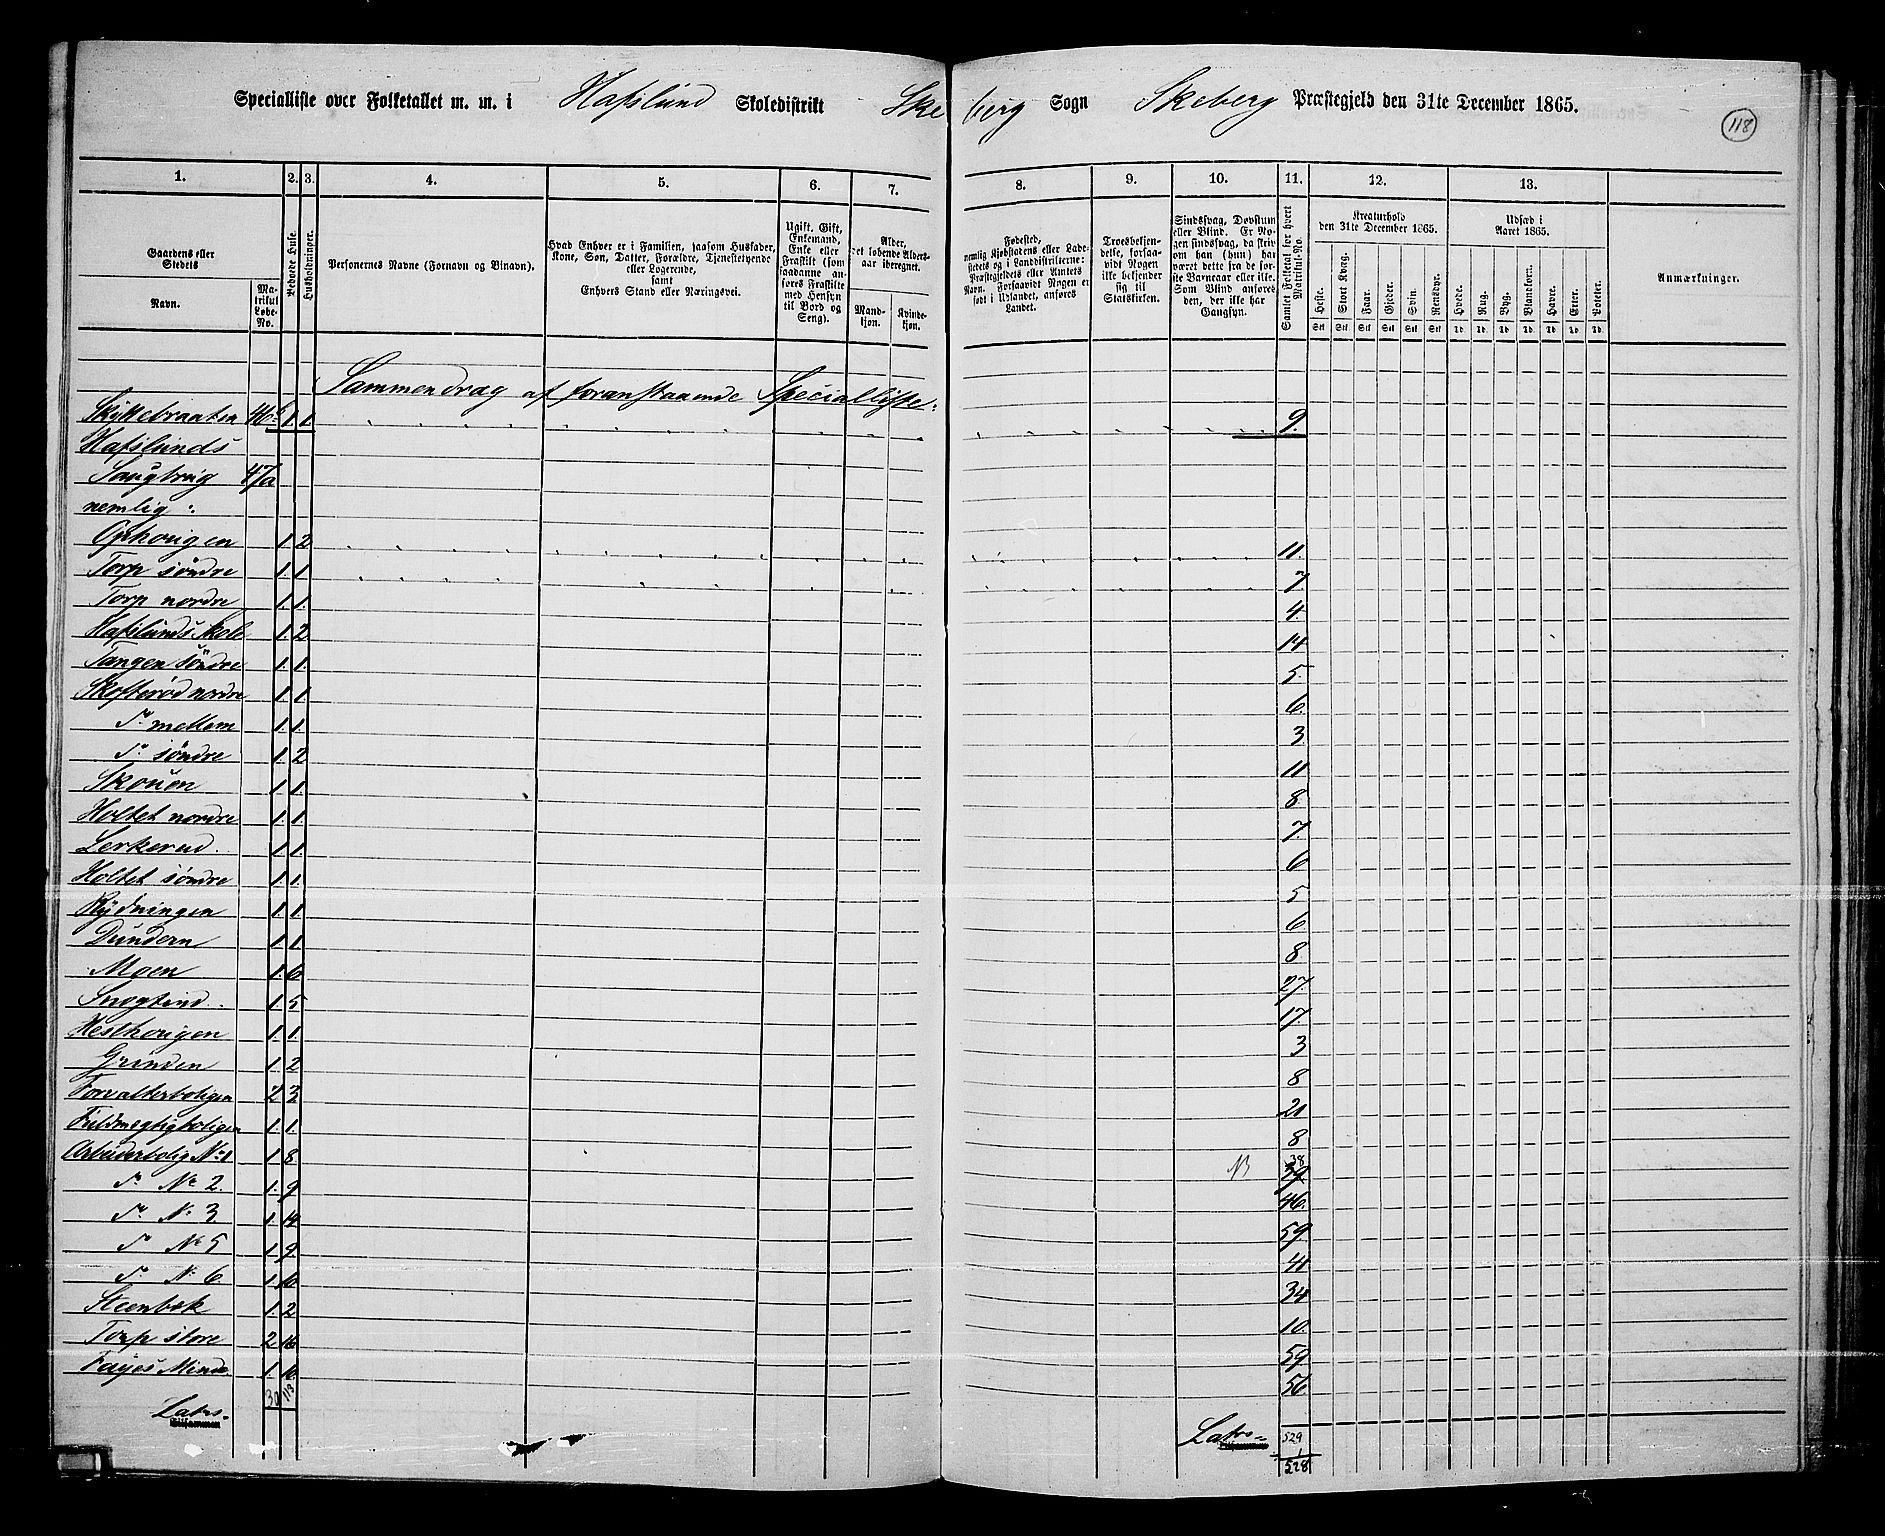 Specialliste over Folketallet m. m. i Hafslund Skoledistrikt Skeberg Sogn Skeberg Præstegjeld den 31te December 1865.
118
1. 2. 3. 4. 5. 6. 7. 8. 9. 10. 11. 12. 13.
Gaardens eller Stedets
Navn.
Matrikul Løbe-No.
Beboede Huse.
Husholdninger.
Personernes Navne (Fornavn og Binavn).
Hvad Enhver er i Familien, saasom Husfader, Kone, Søn, Datter, Forældre, Tjenestetyende eller Logerende, samt Enhvers Stand eller Næringsvei.
Ugift, Gift, Enkemand, Enke eller Fraskilt (som saadanne anføres Fraskilte med Hensyn til Bord og Seng).
Alder, det løbende Alders-aar iberegnet.
Mand-kjøn. Kvinde-kjøn.
Fødested, nemlig Kjøbstadens eller Ladestedets og i Landdistrikterne: Præstegjeldets eller Amtets Navn. Forsaavidt Nogen er født i Udlandet, anføres Landet.
Troesbekjendelse, forsaavidt Nogen ikke bekjender sig til Statskirken.
Sindssvag, Døvstum eller Blind. Er Nogen sindssvag, da skriv om han (hun) har været dette fra de første Barneaar eller ikke. Som Blind anføres den, der ikke har Gangsyn.
Samlet Folketal for hvert Matrikul-No.
Kreaturhold den 31te December 1865.
Heste. Stort Kvæg. Faar. Gjeder. Svin. Rensdyr.
Stk Stk Stk Stk Stk Stk
Udsæd i Aaret 1865.
Hvede. Rug. Byg. Blandkorn. Havre. Erter. Poteter.
Td. Td. Td. Td. Td. Td. Td.
Anmærkninger.
Sammendrag af foranstaaende Specialliste:
Skittebraaten 46b 1. 1. 9.
Hafslunds
Saugbrug 47a
nemlig:
Ophougen 1. 2 11.
Torp søndre 1. 1. 7
Torp nordre 1. 1. 4.
Hafslunds Skole 1. 2. 14
Tangen søndre 1. 1. 5.
Skofterød nordre 1. 1. 6.
Do mellem 1. 1. 3.
Do søndre 1. 2 11
Skouen 1. 1. 8.
Holtet nordre 1. 1. 7.
Lerkerud. 1. 1. 6
Holtet søndre 1. 1. 5
Rydningen 1. 1. 6
Dundern 1. 1. 8
Moen 1. 6 27.
Snogtind. 1. 5 17.
Hesthougen 1. 1. 3
Grinden 1. 2 8
Forvalterboligen 2 3 21
Fuldmægtigboligen 1. 1. 8
Arbeiderbolig No 1 1. 8 NB 38 39
Do No 2. 1. 9 46.
Do No 3 1. 14 59
Do No 5 1. 9. 41
Do No 6. 1. 10. 34
Steenbek 1. 2 10.
Torp store 2 16 59
Fayes Minde. 1. 10 56
30 113
Latus
Tilsammen
Latus
Tilsammen
529
1
528